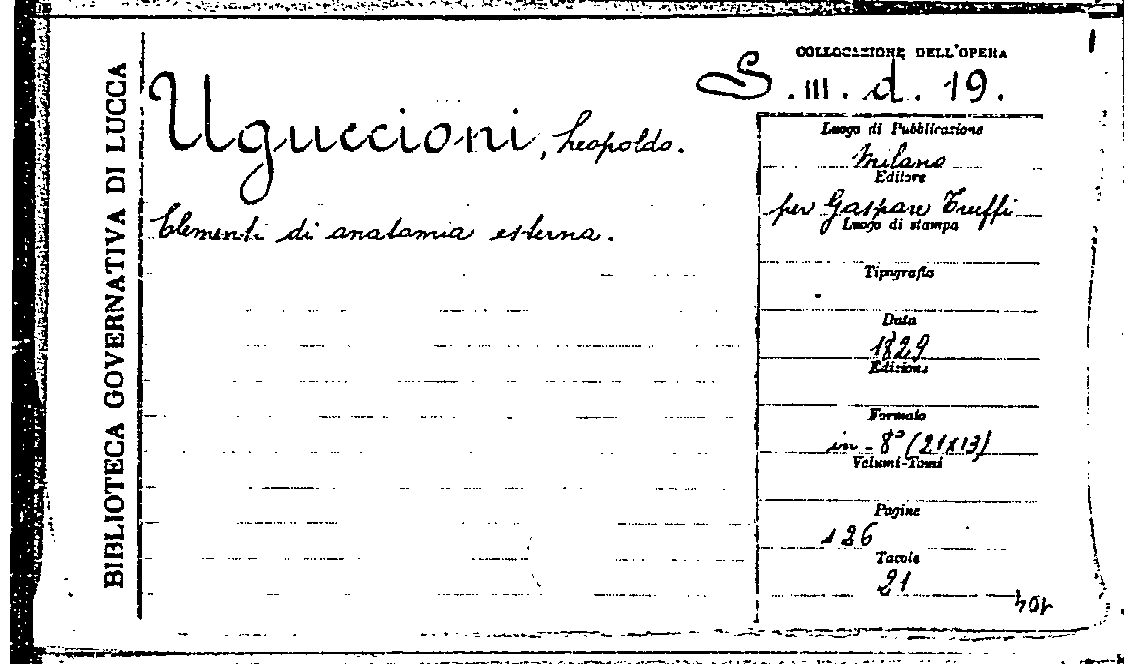 BIBLIOTECA GOVERNATIVA DI LUCCA
COLLOCAZIONE DELL'OPERA
S. III. d. 19.
Uguccioni, Leopoldo.
Elementi di anatomia esterna.
Luogo di Pubblicazione
Milano
Editore
per Gaspare Truffi
Luogo di stampa
Tipografia
Data
1829
Edizione
Formato
in-8° (21x13)
Volumi-Tomi
Pagine
126
Tavole
21